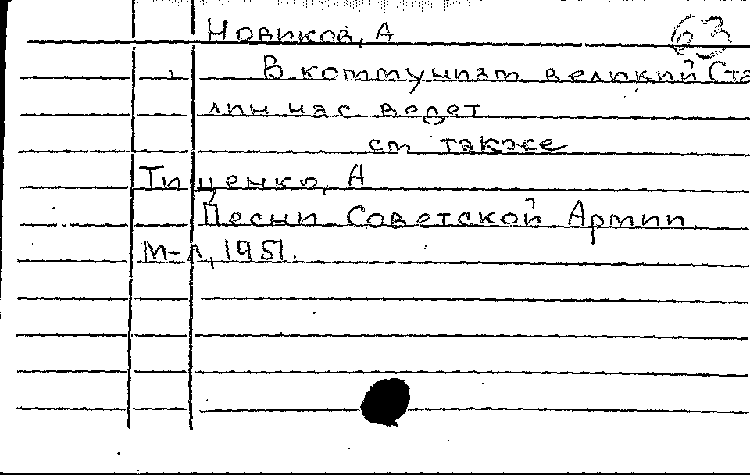 Новиков, А
63
В коммунизм великий Ста
лин нас ведет
см также
Тищенко, А
Песни Советской Армии
М-Л, 1951.